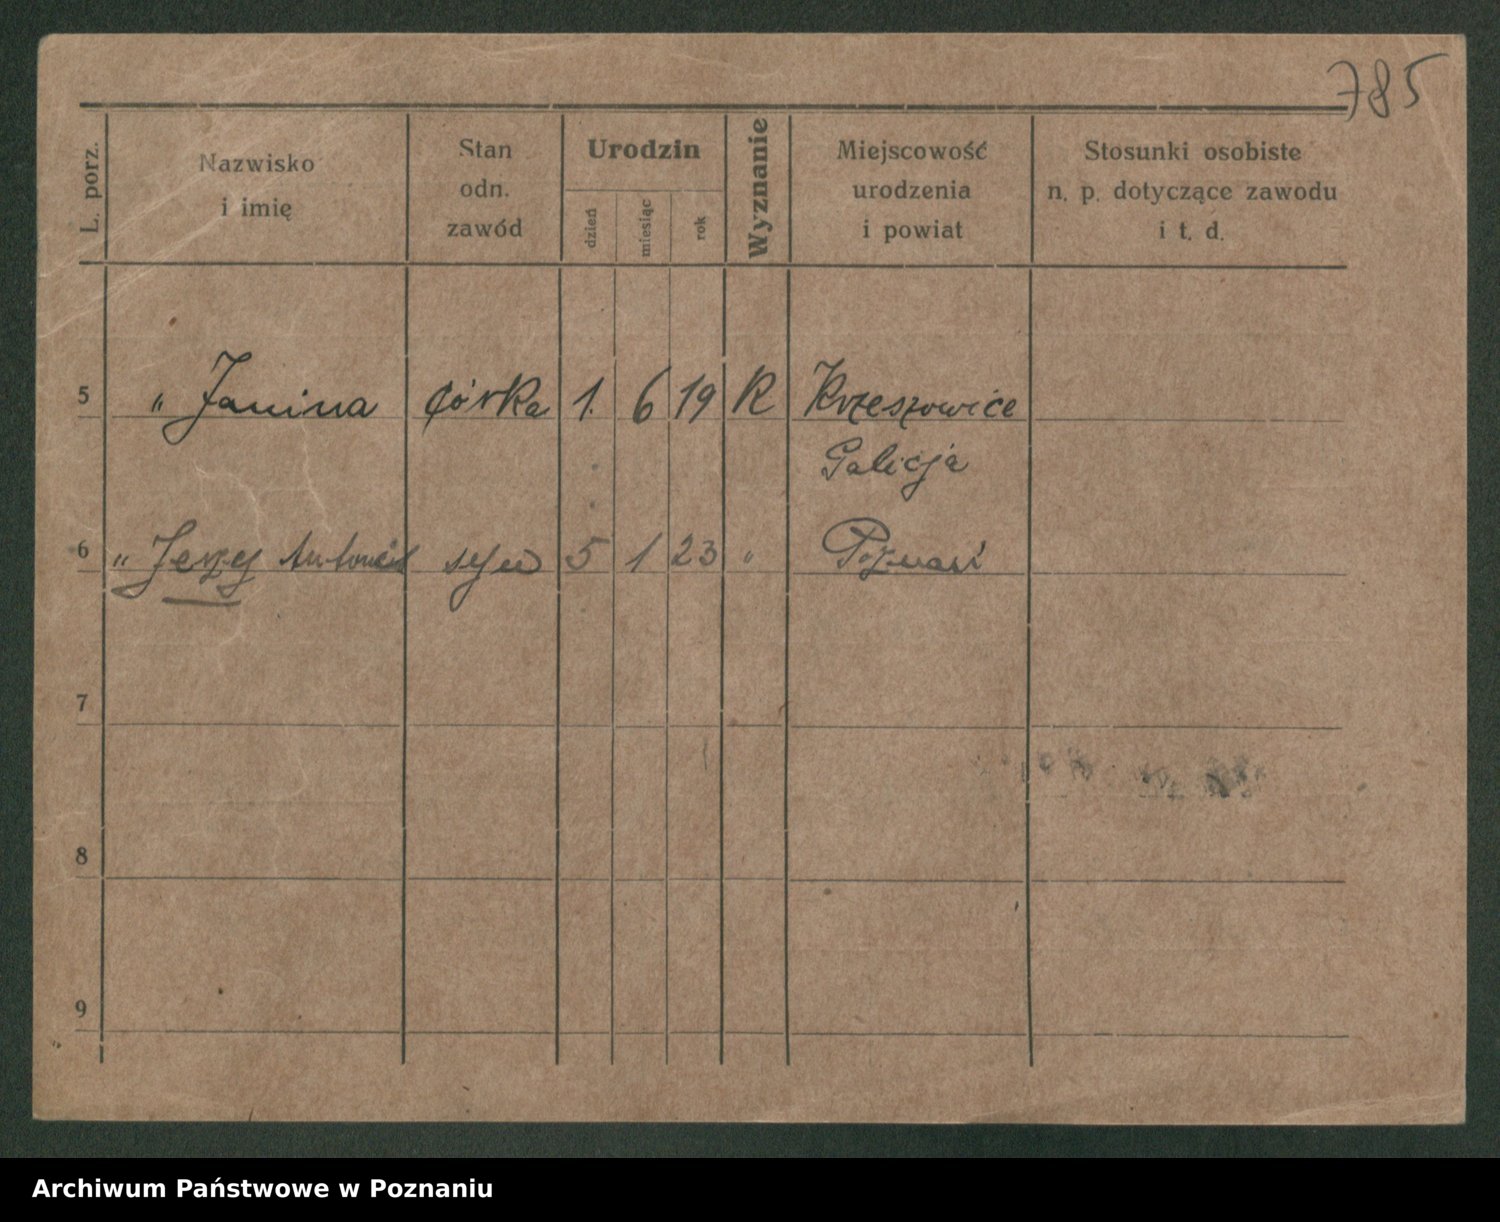 785
L. porz.
Nazwisko
i imię
Stan
odn.
zawód
Urodzin
dzień
miesiąc
rok
Wyznanie
Miejscowość
urodzenia
i powiat
Stosunki osobiste
n. p. dotyczące zawodu
i t. d.
5 " Janina córka 1. 6 19 R Krzeszowice
Galicja
6 " Jerzy Antoni syn 5 1 23 " Poznań
7
8
9
Archiwum Państwowe w Poznaniu